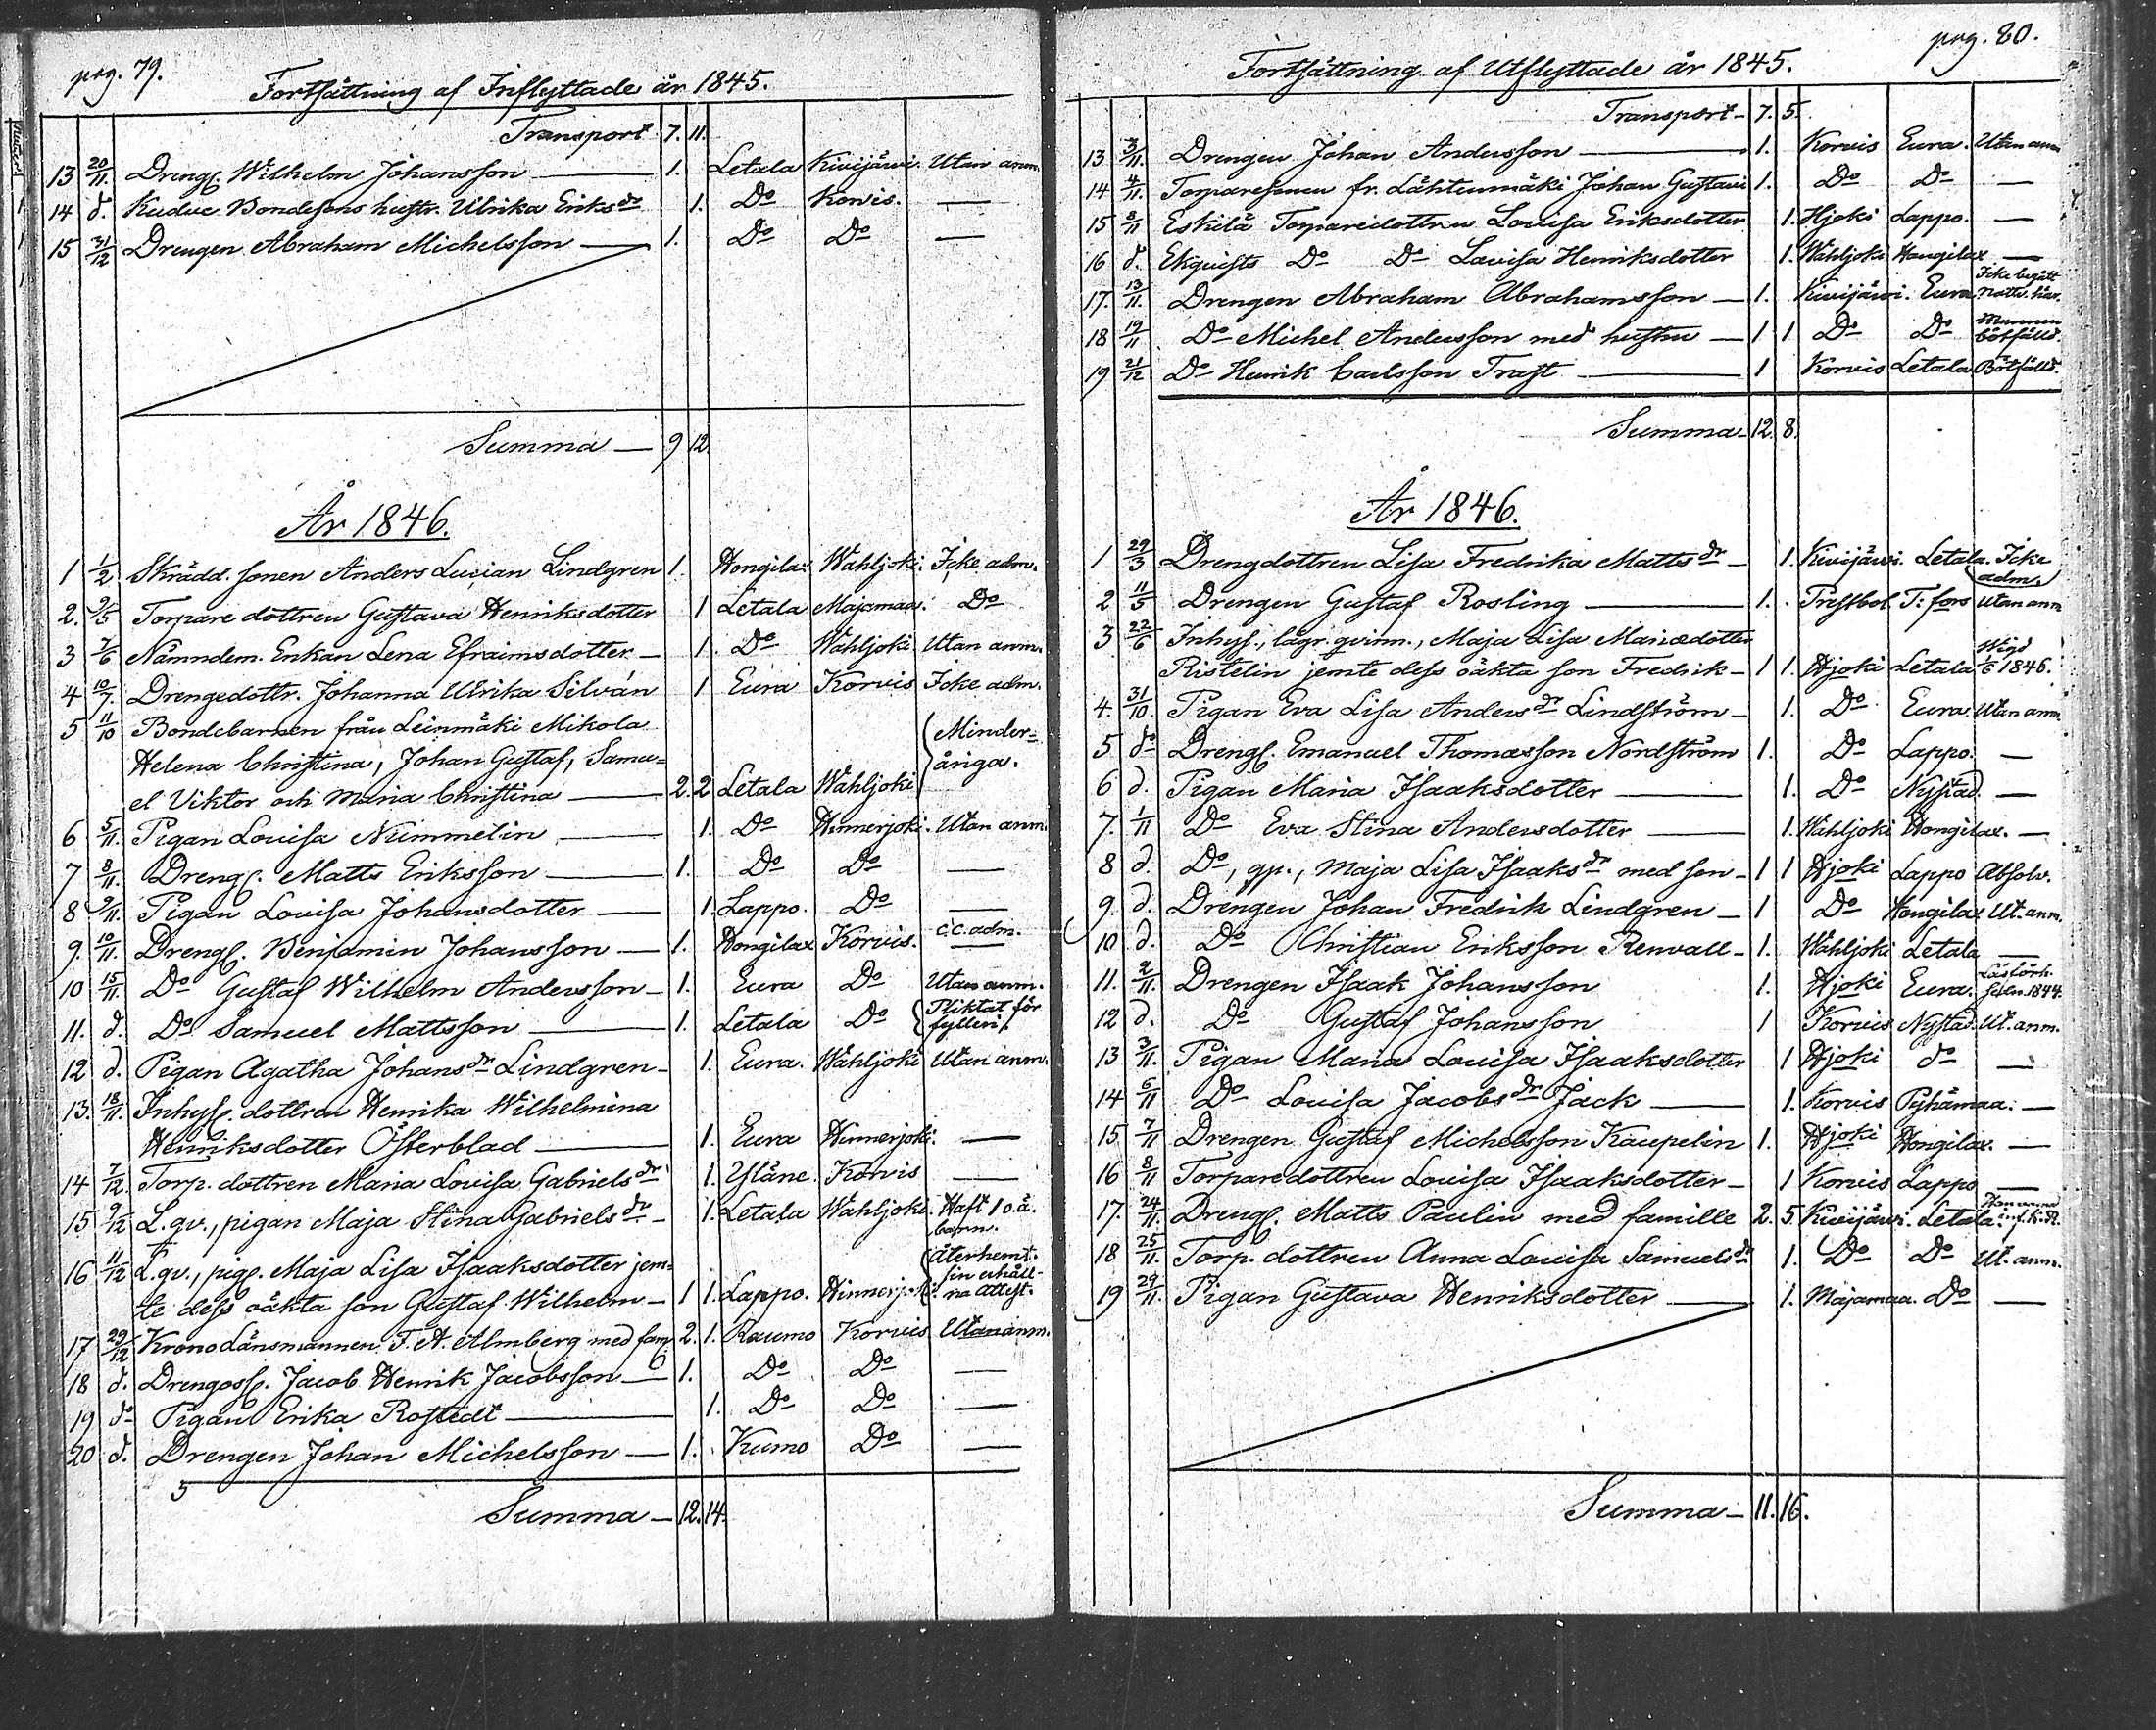 pag. 79.
Fortsättning af Inflyttade år 1845.
Transport 7. 11.
13 20/11. Drengs. Wilhelm Johansson — 1. Letala Kivijärvi. Utan anm.
14 d. Bondesons hustr. Ulrika Eriksdr 1. Do Korvis. —
15 31/12 Drengen Abraham Michelsson — 1. Do Do —
Summa — 9 12
År 1846.
1 1/2 Skrädd. sonen Anders Lucian Lindgren 1. Hongilax Wahljoki. Icke adm.
2. 9/5 Torpare dottren Gustava Henriksdotter 1 Letala Majamaa. Do
3 7/6 Nämndem. Enkan Lena Efraimsdotter — 1. Do Wahljoki Utan anm.
4 10/7. Drengedottr. Johanna Ulrika Silván 1 Eura Korvis Icke adm.
5 11/10 Bondebarnen från Leinmäki Mikola
Helena Christina, Johan Gustaf, Samu= Minder=
el Viktor och Maria Christina — 2. 2 Letala Wahljoki åriga.
6 5/11. Pigan Louisa Nummelin — 1. Do Hinnerjoki. Utan anm.
7 8/11. Drengs. Matts Eriksson — 1. Do Do —
8 9/11. Pigan Louisa Johansdotter — 1. Lappo. Do —
9. 10/11. Drengs. Benjamin Johansson — 1. Hongilax Korvis. c.c. adm. —
10 15/11. Do Gustaf Wilhelm Andersson — 1. Eura Do Utan anm.
11. d. Do Samuel Mattsson — 1. Letala Do Pliktat för fylleri.
12 d. Pigan Agatha Johansdr Lindgren — 1. Eura. Wahljoki Utan anm.
13. 18/11. Inhyss. dottren Henrika Wilhelmina
Henriksdotter Österblad — 1. Eura Hinnerjoki. —
14 7/12. Torp. dottren Maria Louisa Gabrielsdr 1. Yläne. Korvis —
15 9/12 L.qv., pigan Maja Stina Gabrielsdr — 1. Letala Wahljoki. Haft 1 o.ä. barn.
16 11/12 L.qv., pig. Maja Lisa Isaaksdotter jem= Återhemt.
te dess oäkta son Gustaf Wilhelm — 1 1. Lappo. Hinnerjoki. sin erhåll- na attest.
17 29/12 Krono Länsmannen F. A. Almberg med fam. 2. 1. Raumo Korvis Utan anm.
18 d. Drengoss. Jacob Henrik Jacobsson — 1. Do Do —
19 do Pigan Erika Rostedt — 1. Do Do —
20 d. Drengen Johan Michelsson — 1. Kumo Do —
5
Summa — 12. 14.
pag. 80.
Fortsättning af Utflyttade år 1845.
Transport — 7. 5.
13 3/11. Drengen Johan Andersson — 1. Korvis Eura. Utan anm
14 4/11. Torparesonen fr. Lähtenmäki Johan Gustavi 1. Do Do —
15 8/11 Eskilä Torparedottren Lovisa Eriksdotter 1. Hjoki Lappo. —
16 d. Ekqvists Do Do Lovisa Henriksdotter 1. Wahljoki Hongilax —
17. 13/11. Drengen Abraham Abrahamsson — 1. Kivijärvi. Eura Icke begått nattv. här.
18 19/11 Do Michel Andersson med hustru — 1 1 Do Do Mannen bötfälld.
19 21/12 Do Henrik Carlsson Trast — 1 Korvis Letala Bötfälld.
Summa — 12. 8.
År 1846.
1 29/3 Drengdottren Lisa Fredrika Mattsdr — 1. Kivijärvi. Letala. Icke adm.
2 11/5 Drengen Gustaf Rosling — 1. Prestbol T:fors Utan anm
3 22/6 Inhys., lägr. qvinn., Maja Lisa
Ristelin jemte dess oäkta son Fredrik — 1 1. Hjoki Letala Wigd 1846.
4. 31/10. Pigan Eva Lisa Andersdr Lindström — 1. Do Eura. Utan anm
5 do Drengs. Emanuel Thomasson Nordström 1. Do Lappo. —
6 d. Pigan Maria Isaaksdotter — 1. Do Nystad. —
7. 1/11 Do Eva Stina Andersdotter — 1. Wahljoki Hongilax. —
8 d. Do, gp., Maja Lisa Isaaksdr med son — 1 1 Hjoki Lappo Absolv.
9. d. Drengen Johan Fredrik Lindgren — 1 Do Hongilax Ut. anm.
10 d. Do Christian Eriksson Renvall — 1. Wahljoki Letala —
11. 2/11. Drengen Isaak Johansson 1. Hjoki Eura. Läsförh. 1844.
12 d. Do Gustaf Johansson 1 Korvis Nystad. Ut. anm.
13 3/11. Pigan Maria Louisa Isaaksdotter 1 Hjoki do —
14 6/11 Do Louisa Jacobsdr Jack — 1. Korvis Pyhämaa. —
15. 7/11 Drengen Gustaf Michelsson Kaupelin 1. Hjoki Hongilax. —
16 8/11 Torparedottren Louisa Isaaksdotter — 1 Korvis Lappo —
17. 24/11. Drengs. Matts Paulin med famille 2. 5. Kivijärvi. Letala.
18 25/11. Torp. dottren Anna Louisa Samuelsdr 1. Do Do Ut. anm.
19 29/11. Pigan Gustava Henriksdotter — 1. Majamaa. Do —
Summa — 11. 16.